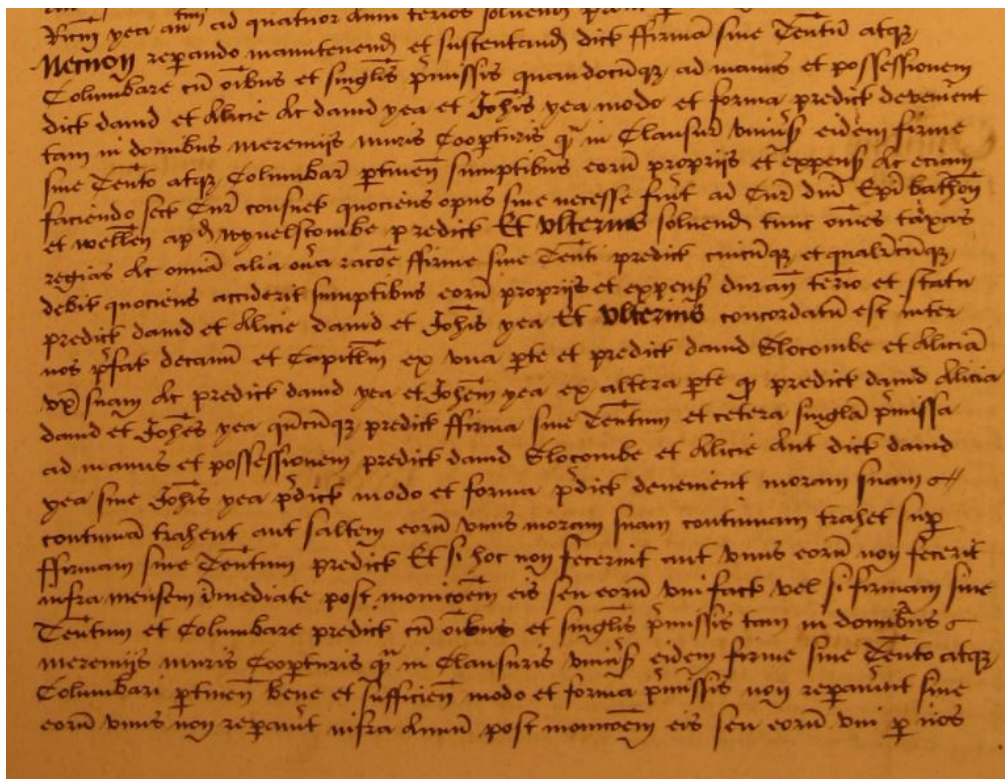 Ricm yea an tm ad quatuor anni terios solvend
Necnon reperando manutenend et sustentand dict ffirmā sive Tentū atqz
Columbare cū oībus et singlis p̄missis quandocūqz ad manus et possessionem
dict david et Alicie Ac david yea et Johīs yea modo et forma predict devenēnt
tam in domibus meremijs muris Coopturis q̄ in Clausur̄ univs̄ eidem firme
sive Tento atqz Columbar̄ ptineñ sumptibus eorū proprijs et expens̄ Ac eciam
faciendo sect Cur̄ consuet quociens opus sive necesse fūit ad Cur̄ dm̄ Epī bathoñ
et welleñ ap̄d wynelscombe predict Et ulterius solvend tunc om̄es taxas
regias Ac omīa alia on̄a racōe ffirme sive Tenti predict cuicūqz et qualitcūqz
debit quociens acciderit sumptibus eorū proprijs et expens̄ durañ terīo et statu
predict david et Alicie david et Johīs yea Et ulterius concordatū est inter
nos p̄fat decanū et Capitlm ex una pte et predict david Slocombe et Aliciā
ux̄ suam Ac predict david yea et Johēm yea ex altera pte q̄ predict david Alicia
david et Johēs yea qn̄cūqz predict ffirma sive Tentum et cetera singlā p̄missa
ad manus et possessionem predict david Slocombe et Alicie Aut dict david
yea sive Johīs yea p̄dict modo et forma p̄dict devenient moram suam
continuā trahent aut saltem eorū unus moram suam continuam trahet sup
ffirmam sive Tentum predict Et si hoc non fecerint aut unus eorū non fecerit
infra mensem īmediate post monicōem eis seu eorū uni fact vel si firmam sive
Tentum et Columbare predict cū oībus et singlis p̄missis tam in domibus
meremijs muris Coopturis q̄ in Clausuris univs̄ eidem firme sive Tento atqz
Columbari ptineñ bene et sufficieñ modo et forma p̄missis non reperav̄int sive
eorū unus non reperav̄t infra Annū post monicōem eis seu eorū uni p nos